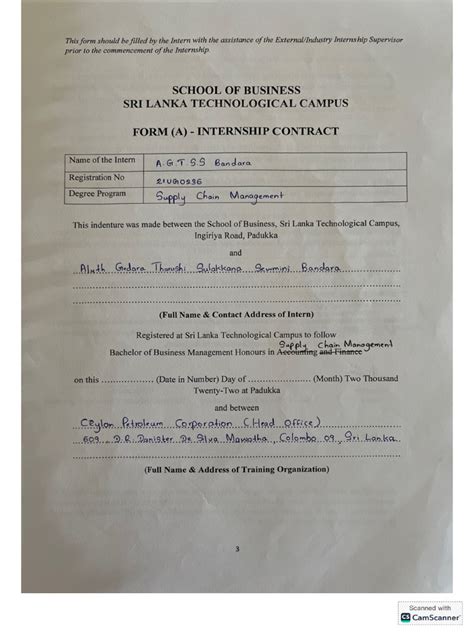 This form should be filled by the Intern with the assistance of the External/Industry Internship Supervisor
prior to the commencement of the Internship.
SCHOOL OF BUSINESS
SRI LANKA TECHNOLOGICAL CAMPUS
FORM (A) - INTERNSHIP CONTRACT
Name of the Intern A.G.T.S.S Bandara
Registration No 21UG0296
Degree Program Supply Chain Management
This indenture was made between the School of Business, Sri Lanka Technological Campus,
Ingiriya Road, Padukka
and
Aluth Gedara Tharushi Sulakkana Bandara
(Full Name & Contact Address of Intern)
Registered at Sri Lanka Technological Campus to follow
Supply Chain Management
Bachelor of Business Management Honours in Accounting and Finance
on this .................. (Date in Number) Day of .................. (Month) Two Thousand
Twenty-Two at Padukka
and between
Ceylon Petroleum Corporation (Head Office)
609, D.R. Danister De Silva Mawatha, Colombo 09, Sri Lanka
(Full Name & Address of Training Organization)
3
Scanned with
CS CamScanner